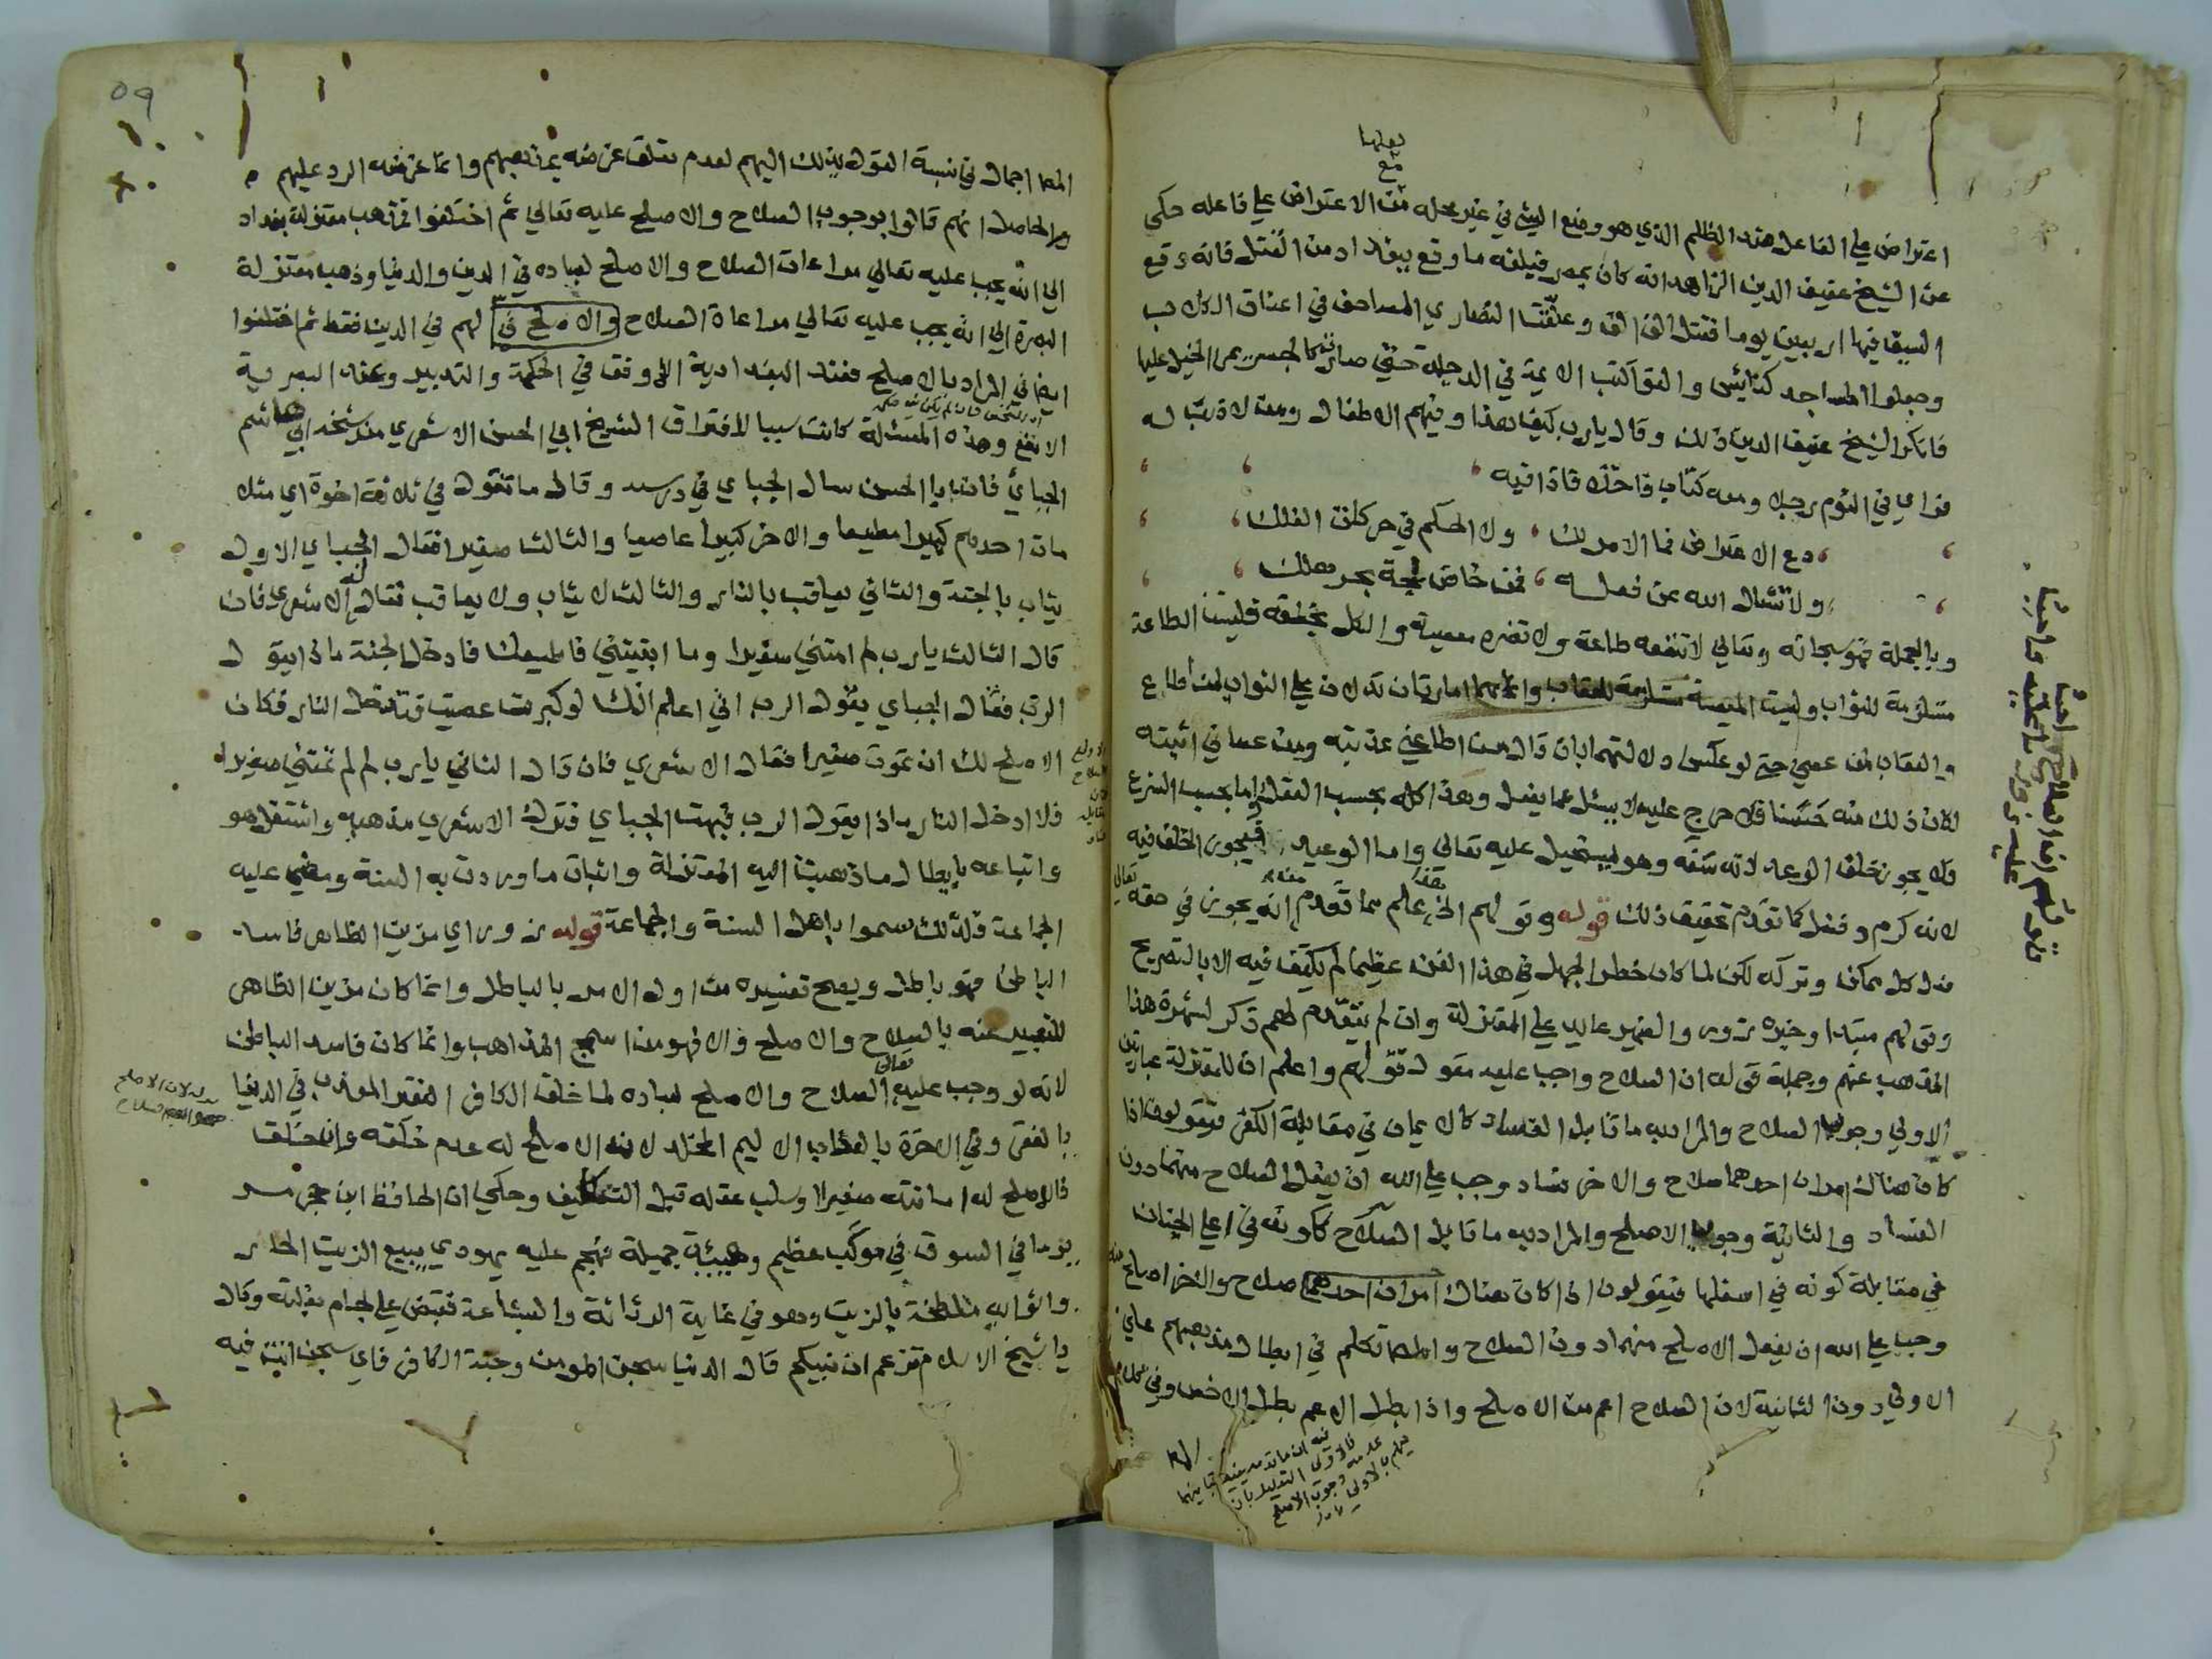 بعلمها
مع
اعتراض على الفاعل هذا الظلم الذي هو وضع الشيء في غير محله من الاعتراض على فاعله حكى
عن الشيخ عفيف الدين الزاهد انه كان بمصر فبلغه ما وقع ببغداد من القتل فانه وقع
السيف فيها اربعين يوما فقتل الف الف وعلقت النصارى المصاحف في اعناق الكلاب
وجعلوا المساجد كنايس والقوا كتب الايمة في الدجلة حتى صارت كالجسر يمر الخيل عليها
فانكر الشيخ عفيف الدين ذلك وقال يارب كيف هذا وفيهم الاطفال ومن لا ذنب له
فراى في النوم رجل ومعه كتاب فاخذه فاذا فيه
دع الاعتراض فما الامر لك ، ولا الحكم في حركات الفلك
ولا تسال الله عن فعله ، فمن خاض لجة بحر هلك
وبالجملة فهو سبحانه وتعالي لا تنفعه طاعة ولا تضره معصية والكل بخلقه فليست الطاعة
مستلزمة للثواب وليست المعصية مستلزمة للعقاب وانما هما امارتان تدلان على الثواب لمن أطاع
والعقاب لمن عصي حتى لو عكس دلالتهما بان قال من اطاعني عذبته ومن عصاني اثبته
لكان ذلك منه حسنا فلا حرج عليه لا يسئل عما يفعل وهذا كله بحسب العقل واما بحسب الشرع
فلا يجوز تخلف الوعد لانه سفه وهو يستحيل عليه تعالي واما الوعيد فيجوز التخلف فيه
لانه كرم وفضل كما تقدم تحقيق ذلك قوله وقولهم الخ علم مما تقدم انه يجوز في حقه تعالى
فعل كل ممكن وتركه لكن لما كان خطر الجهل في هذا الفن عظيما لم يكتف فيه الا بالتصريح
وقولهم مبتدا وخبره زور والضمير عايد على المعتزلة وان لم يتقدم لهم ذكر لشهرة هذا
المذهب عنهم وجملة قوله ان الصلاح واجب عليه مقول قولهم واعلم ان للمعتزلة عبارتين
الاولي وجوب الصلاح والمراد به ما قابل الفساد كالايمان في مقابلة الكفر فيقولون اذا
كان هناك امران احدهما صلاح والاخر فساد وجب على الله ان يفعل الصلاح منهما دون
الفساد والثانية وجوب الاصلح والمراد به ما قابل الصلاح ككونه في اعلى الجنان
في مقابلة كونه في اسفلها فيقولون اذا كان هناك امران احدهما صلاح والاخر اصلح منه
وجب على الله ان يفعل الاصلح منهما دون الصلاح والمص تكلم في ابطال مذهبهم على
الاولي دون الثانية لان الصلاح اعم من الاصلح واذا بطل الاعم بطل الاخص وفي كلام
المص اجمال في نسبة القول بذلك اليهم لعدم تعلق غرضه بمذهبهم وانما غرضه الرد عليهم
والحاصل انهم قالوا بوجوب الصلاح والاصلح عليه تعالي ثم اختلفوا فذهب معتزلة بغداد
الي انه يجب عليه تعالي مراعات الصلاح والاصلح لعباده في الدين والدنيا وذهب معتزلة
البصرة الي انه يجب عليه تعالي مراعاة الصلاح والاصلح في لهم في الدين فقط ثم اختلفوا
ايضا في المراد بالاصلح فعند البغدادية الاوفق في الحكمة والتدبير وعند البصرية
الانفع وهذه المسئلة كانت سببا لافتراق الشيخ ابي الحسن الاشعري من شيخه ابي هاشم
الجبائ فان ابا الحسن سال الجباي في درسه وقال ما تقول في ثلاثة اخوة اي مثلا
مات احدهم كبيرا مطيعا والاخر كبيرا عاصيا والثالث صغيرا فقال الجباي الاول
يثاب بالجنة والثاني يعاقب بالنار والثالث لا يثاب ولا يعاقب فقال له الاشعري فان
قال الثالث يا رب لم امتني صغيرا وما ابقيتني فاطيعك فادخل الجنة ماذا يقول
الرب فقال الجباي يقول الرب اني اعلم انك لو كبرت عصيت فتدخل النار فكان
الاصلح لك ان تموت صغيرا فقال الاشعري فان قال الثاني يا رب لم لم تمتني صغيرا
فلا ادخل النار ماذا يقول الرب فبهت الجباي فترك الاشعري مذهبه واشتغل هو
واتباعه بابطال ما ذهبت اليه المعتزلة واثبات ما وردت به السنة ومضى عليه
الجماعة فلذلك سموا باهل السنة والجماعة قوله زور اي مزين الظاهر فاسد
الباطن فهو باطل ويصح تفسيره من اول الامر بالباطل وانما كان مزين الظاهر
للتعبير عنه بالصلاح والاصلح والا فهو من اسمج المذاهب وانما كان فاسد الباطن
لانه لو وجب عليه تعالى الصلاح والاصلح لعباده لما خلق الكافر الفقير المعذب في الدنيا
بالفقر وفي الاخرة بالعذاب الاليم المخلد لان الاصلح له عدم خلقه وان خلق
فالاصلح له اماتته صغيرا وسلب عقله قبل التكليف وحكي ان الحافظ ابن حجر مر
يوما في السوق في موكب عظيم وهيئة جميلة فهجم عليه يهودي يبيع الزيت الحار
واثوابه ملطخة بالزيت وهو في غاية الرثاثة والبشاعة فقبض على لجام بغلته وقال
يا شيخ الاسلام تزعم ان نبيكم قال الدنيا سجن المومن وجنة الكافر فاي سجن انت فيه